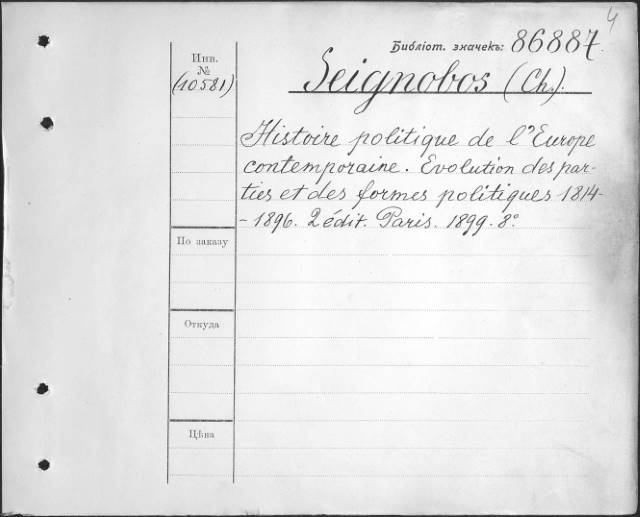 4
Библіот. значекъ: 86887.
Инв.
№
(10581)
Seignobos (Ch.).
Histoire politique de l'Europe
contemporaine. Evolution des par-
ties et des formes politiques 1814-
- 1896. 2 édit. Paris. 1899. 8°
По заказу
Откуда
Цѣна